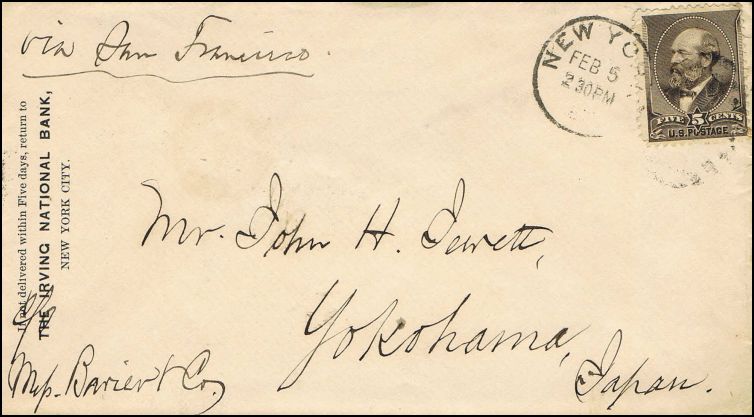 via San Francisco.
NEW YORK
FEB 5
2 30 PM
FIVE 5 CENTS
U.S. POSTAGE
If not delivered within Five days, return to
THE IRVING NATIONAL BANK,
NEW YORK CITY.
Mr. John H. Jewett,
Yokohama,
Japan.
c/o
& Co,